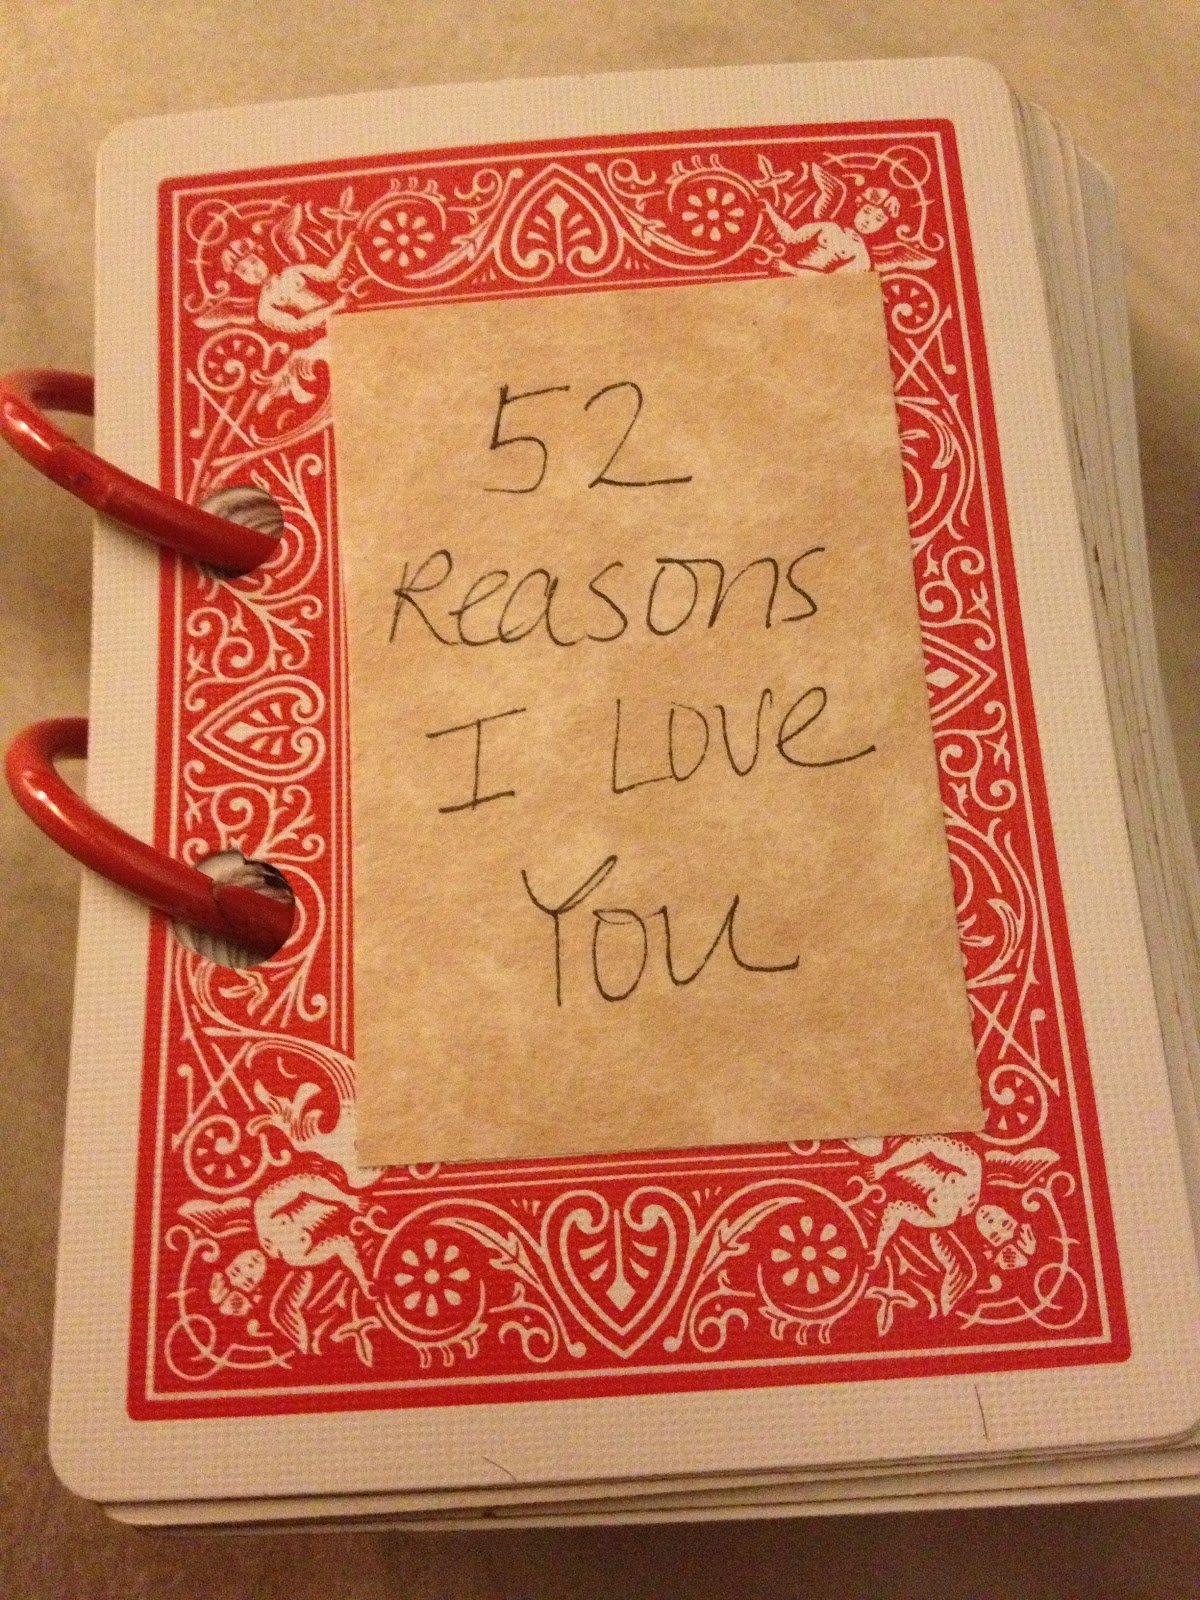 52
Reasons
I Love
You